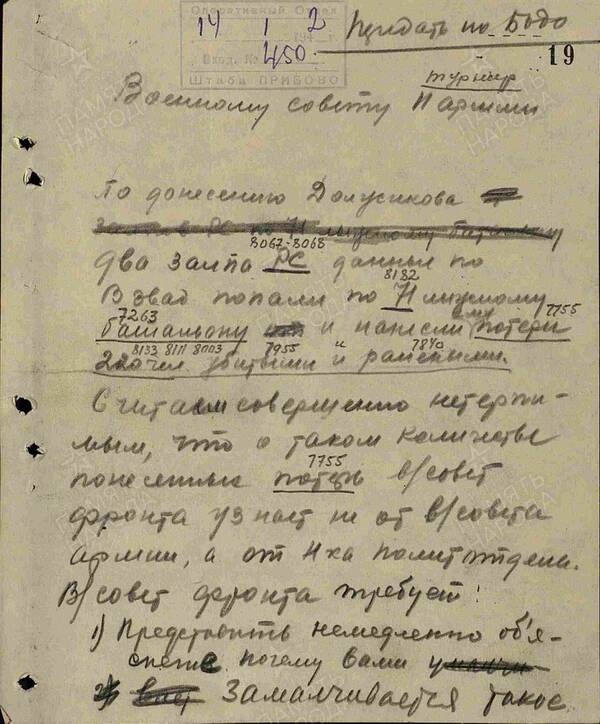 Оперативный Отдел
14 1 2
194 г.
Вход. № 450
Штаба ПРИБОВО
Передать по Бодо
19
турнир
Военному совету 11 армии
По донесению
два залпа РС данные по
8067-8068
8182
Взвад попали по 71 лыжному
7263
7755
батальону и нанесли ему потери
8133 8111 8003 7955 7840
200 чел убитыми и ранеными.
Считаем совершенно нетерпи-
мым, что о таком количестве
7755
понесенных потерь в/совет
фронта узнает не от в/совета
армии, а от н-ка политотдела.
В/совет фронта требует:
1) Представить немедленно объя-
снение почему вами
замалчивается такое
ПАМЯТЬ НАРОДА